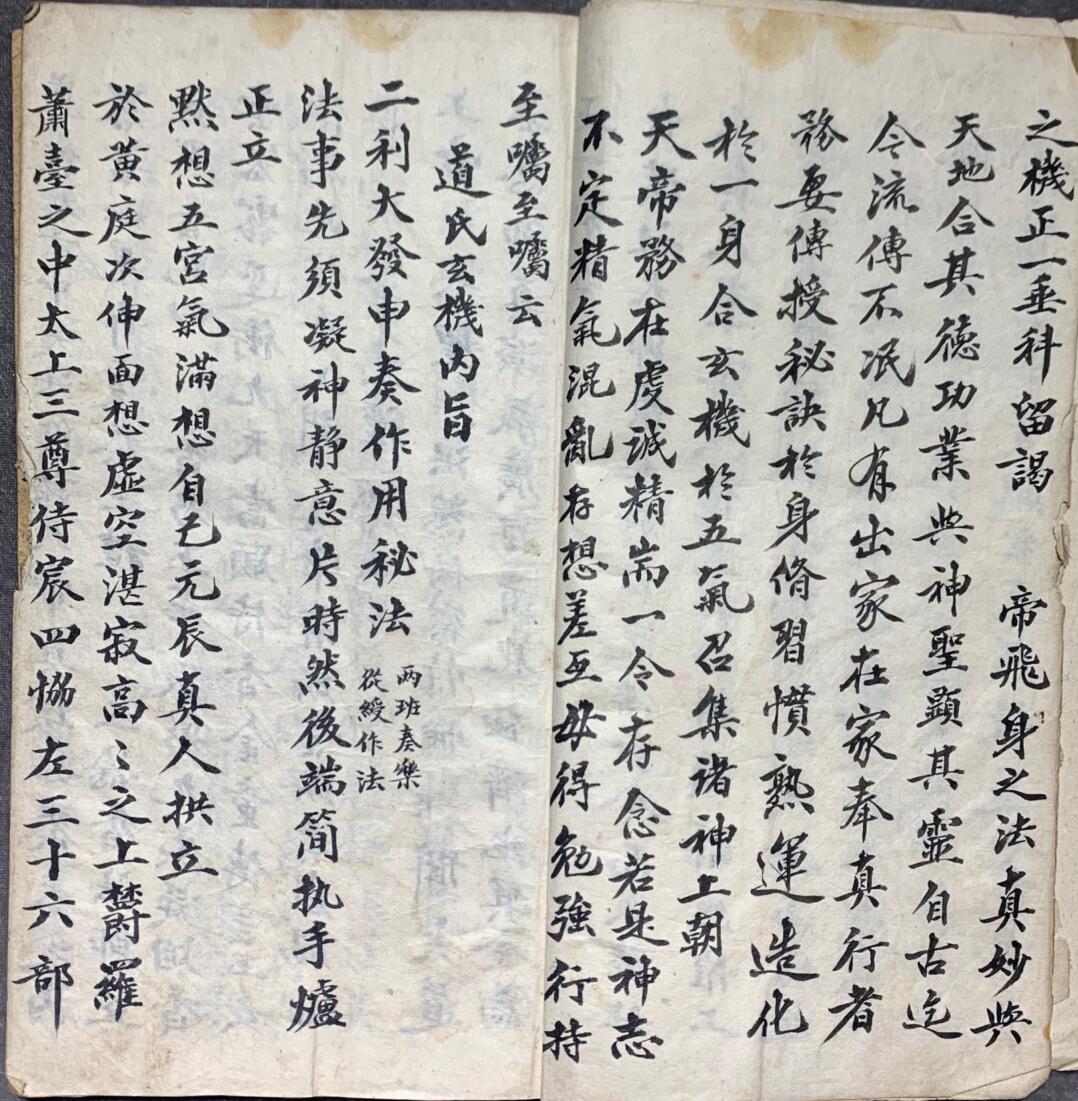 之機正一垂科留謁　帝飛身之法真妙與
天地合其德功業與神聖顯其靈自古迄
今流傳不泯凡有出家在家奉真行者
務要傳授秘訣於身脩習慣熟運造化
於一身合玄機於五氣召集諸神上朝
天帝務在虔誠精耑一令存念若是神志
不定精氣混亂存想差互毋得勉強行持
至囑至囑云
道氏玄機內旨
二利大發申奏作用秘法 兩班奏樂
從綬作法
法事先須凝神靜意片時然後端簡执手爐
正立
黙想五宮氣滿想自己元辰真人拱立
於黄庭次伸面想虛空湛寂高〻之上欝羅
蕭臺之中太上三尊侍宸四恊左三十六部